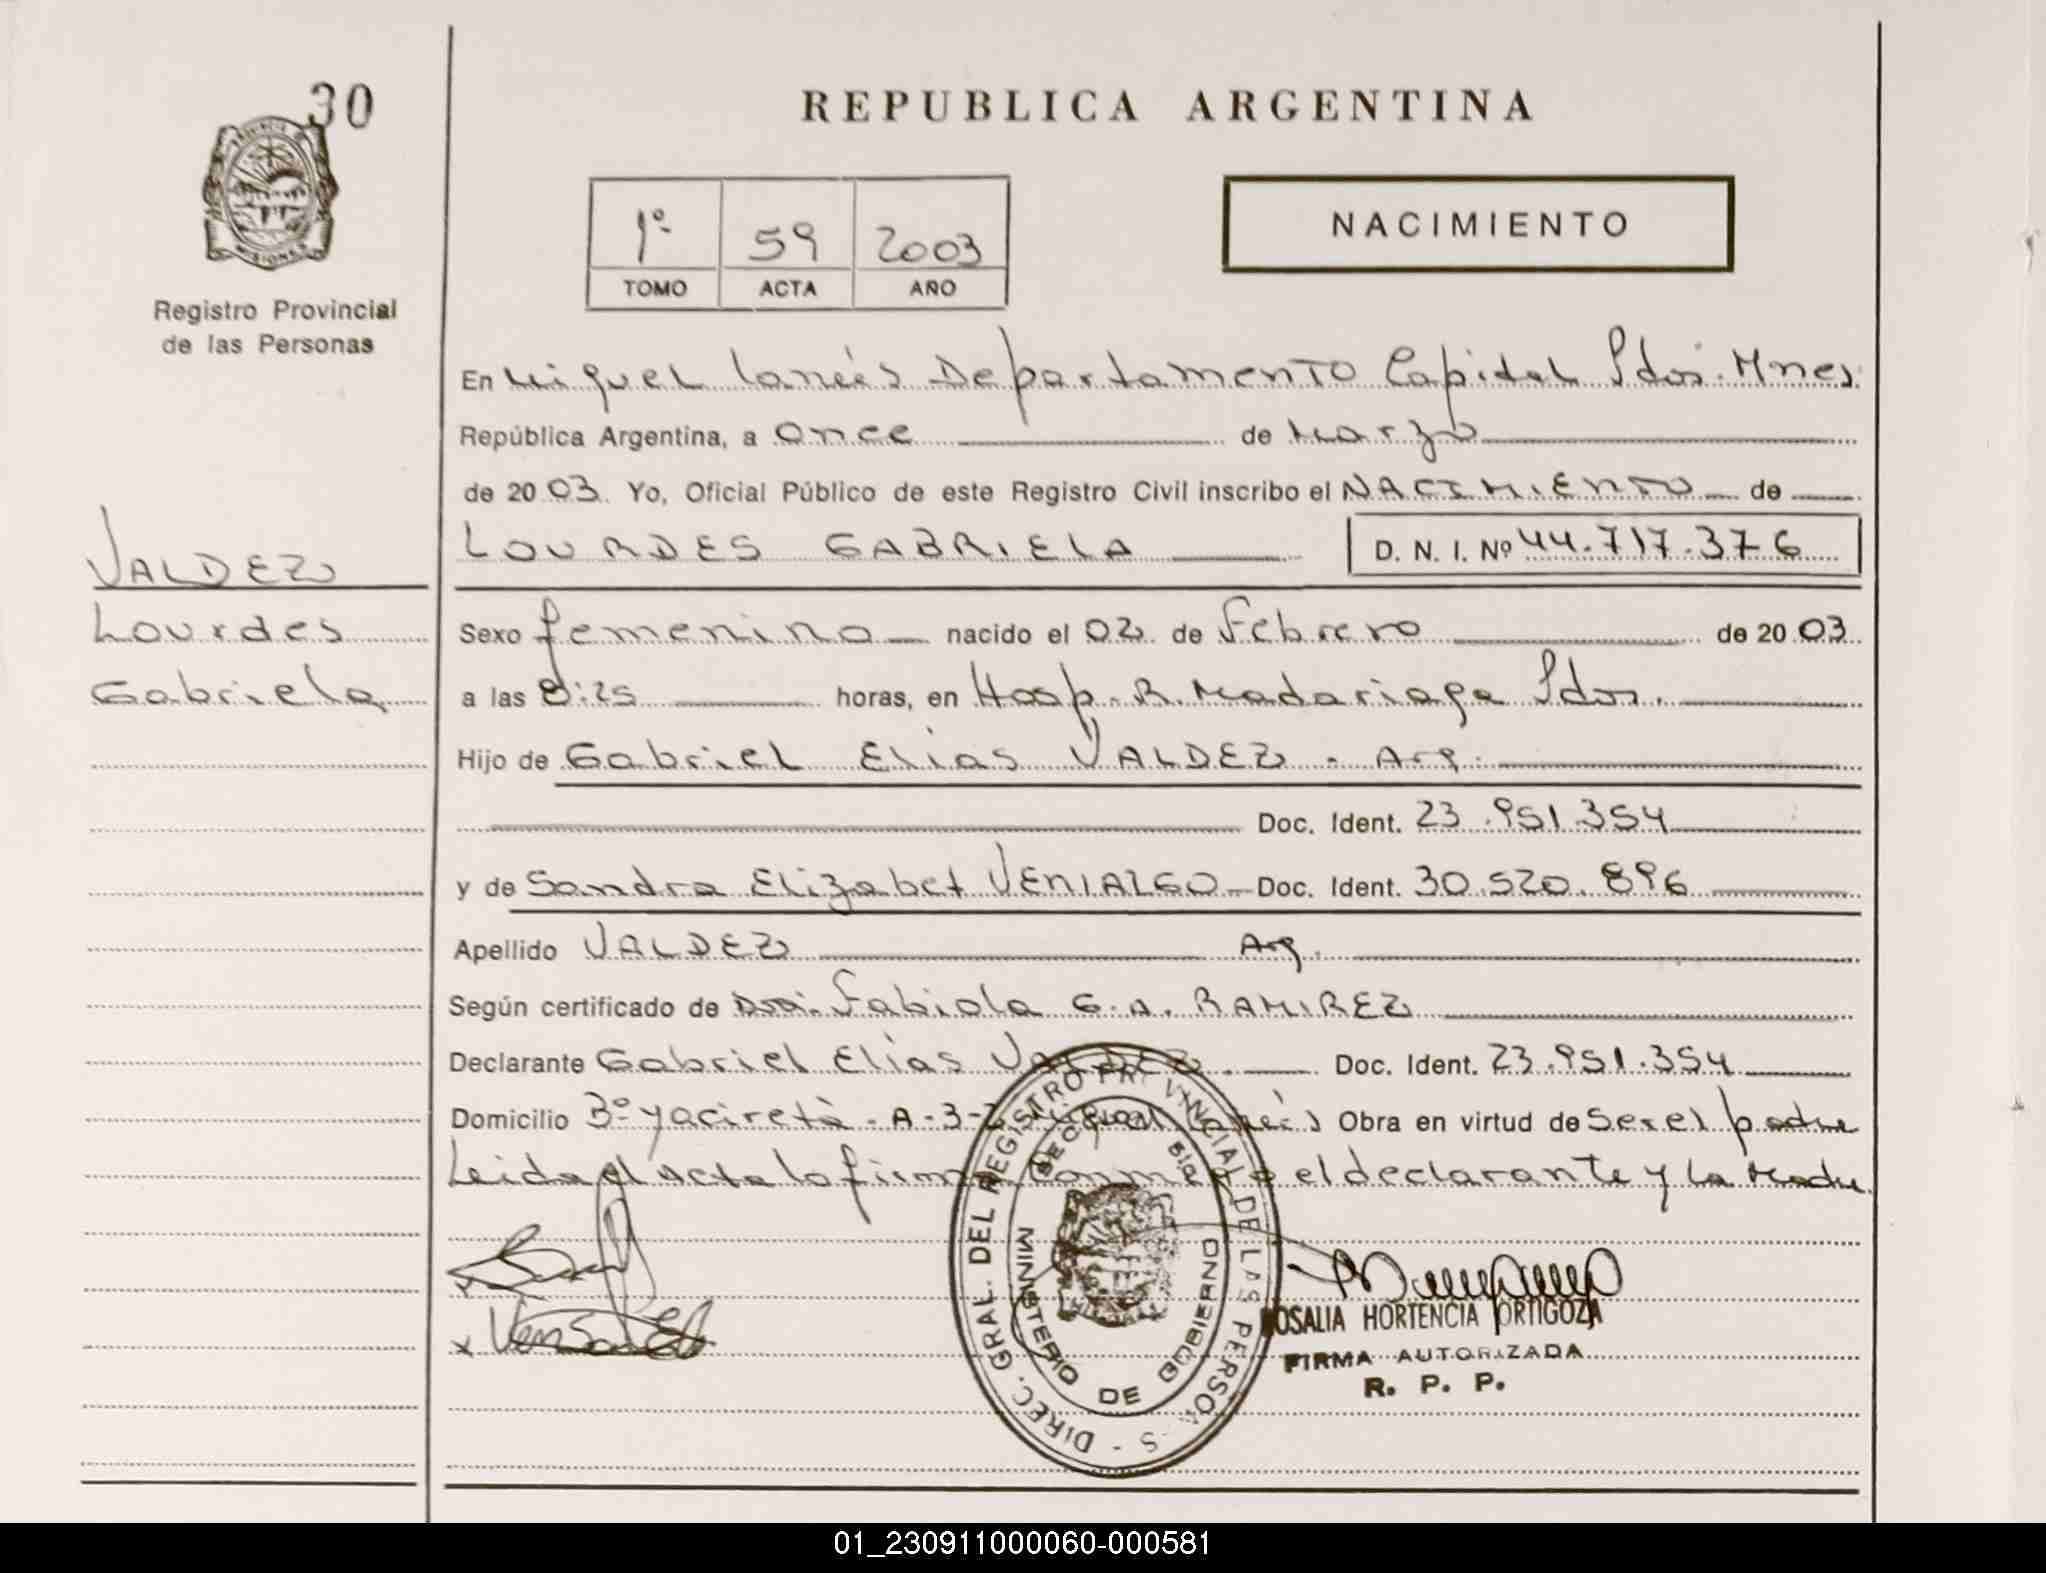 30
REPUBLICA ARGENTINA
NACIMIENTO
1º 59 2003
TOMO ACTA AÑO
PROVINCIA DE MISIONES
Registro Provincial
de las Personas
En Miguel Lanús Departamento Capital Pdas. Mnes.
República Argentina, a once de Marzo
de 2003. Yo, Oficial Público de este Registro Civil inscribo el NACIMIENTO de
LOURDES GABRIELA D. N. I. Nº 44.717.376
VALDEZ
Lourdes
Gabriela
Sexo femenino nacido el 02 de Febrero de 2003
a las 8:25 horas, en Hosp. R. Madariaga Pdas.
Hijo de Gabriel Elías VALDEZ - Arg.
Doc. Ident. 23.951.354
y de Sandra Elizabet VENIALGO Doc. Ident. 30.520.896
Apellido VALDEZ Arg.
Según certificado de Dra. Fabiola G. A. RAMIREZ
Declarante Gabriel Elías VALDEZ. Doc. Ident. 23.951.354
Domicilio Bº Yaciretá - A-3-2 Miguel Lanús Obra en virtud de ser el padre
Leida el Acta la firma conmigo el declarante y la Madre.
DIREC. GRAL. DEL REGISTRO PROVINCIAL DE LAS PERSONAS
MINISTERIO DE GOBIERNO
ROSALIA HORTENCIA ORTIGOZA
FIRMA AUTORIZADA
R. P. P.
01_230911000060-000581